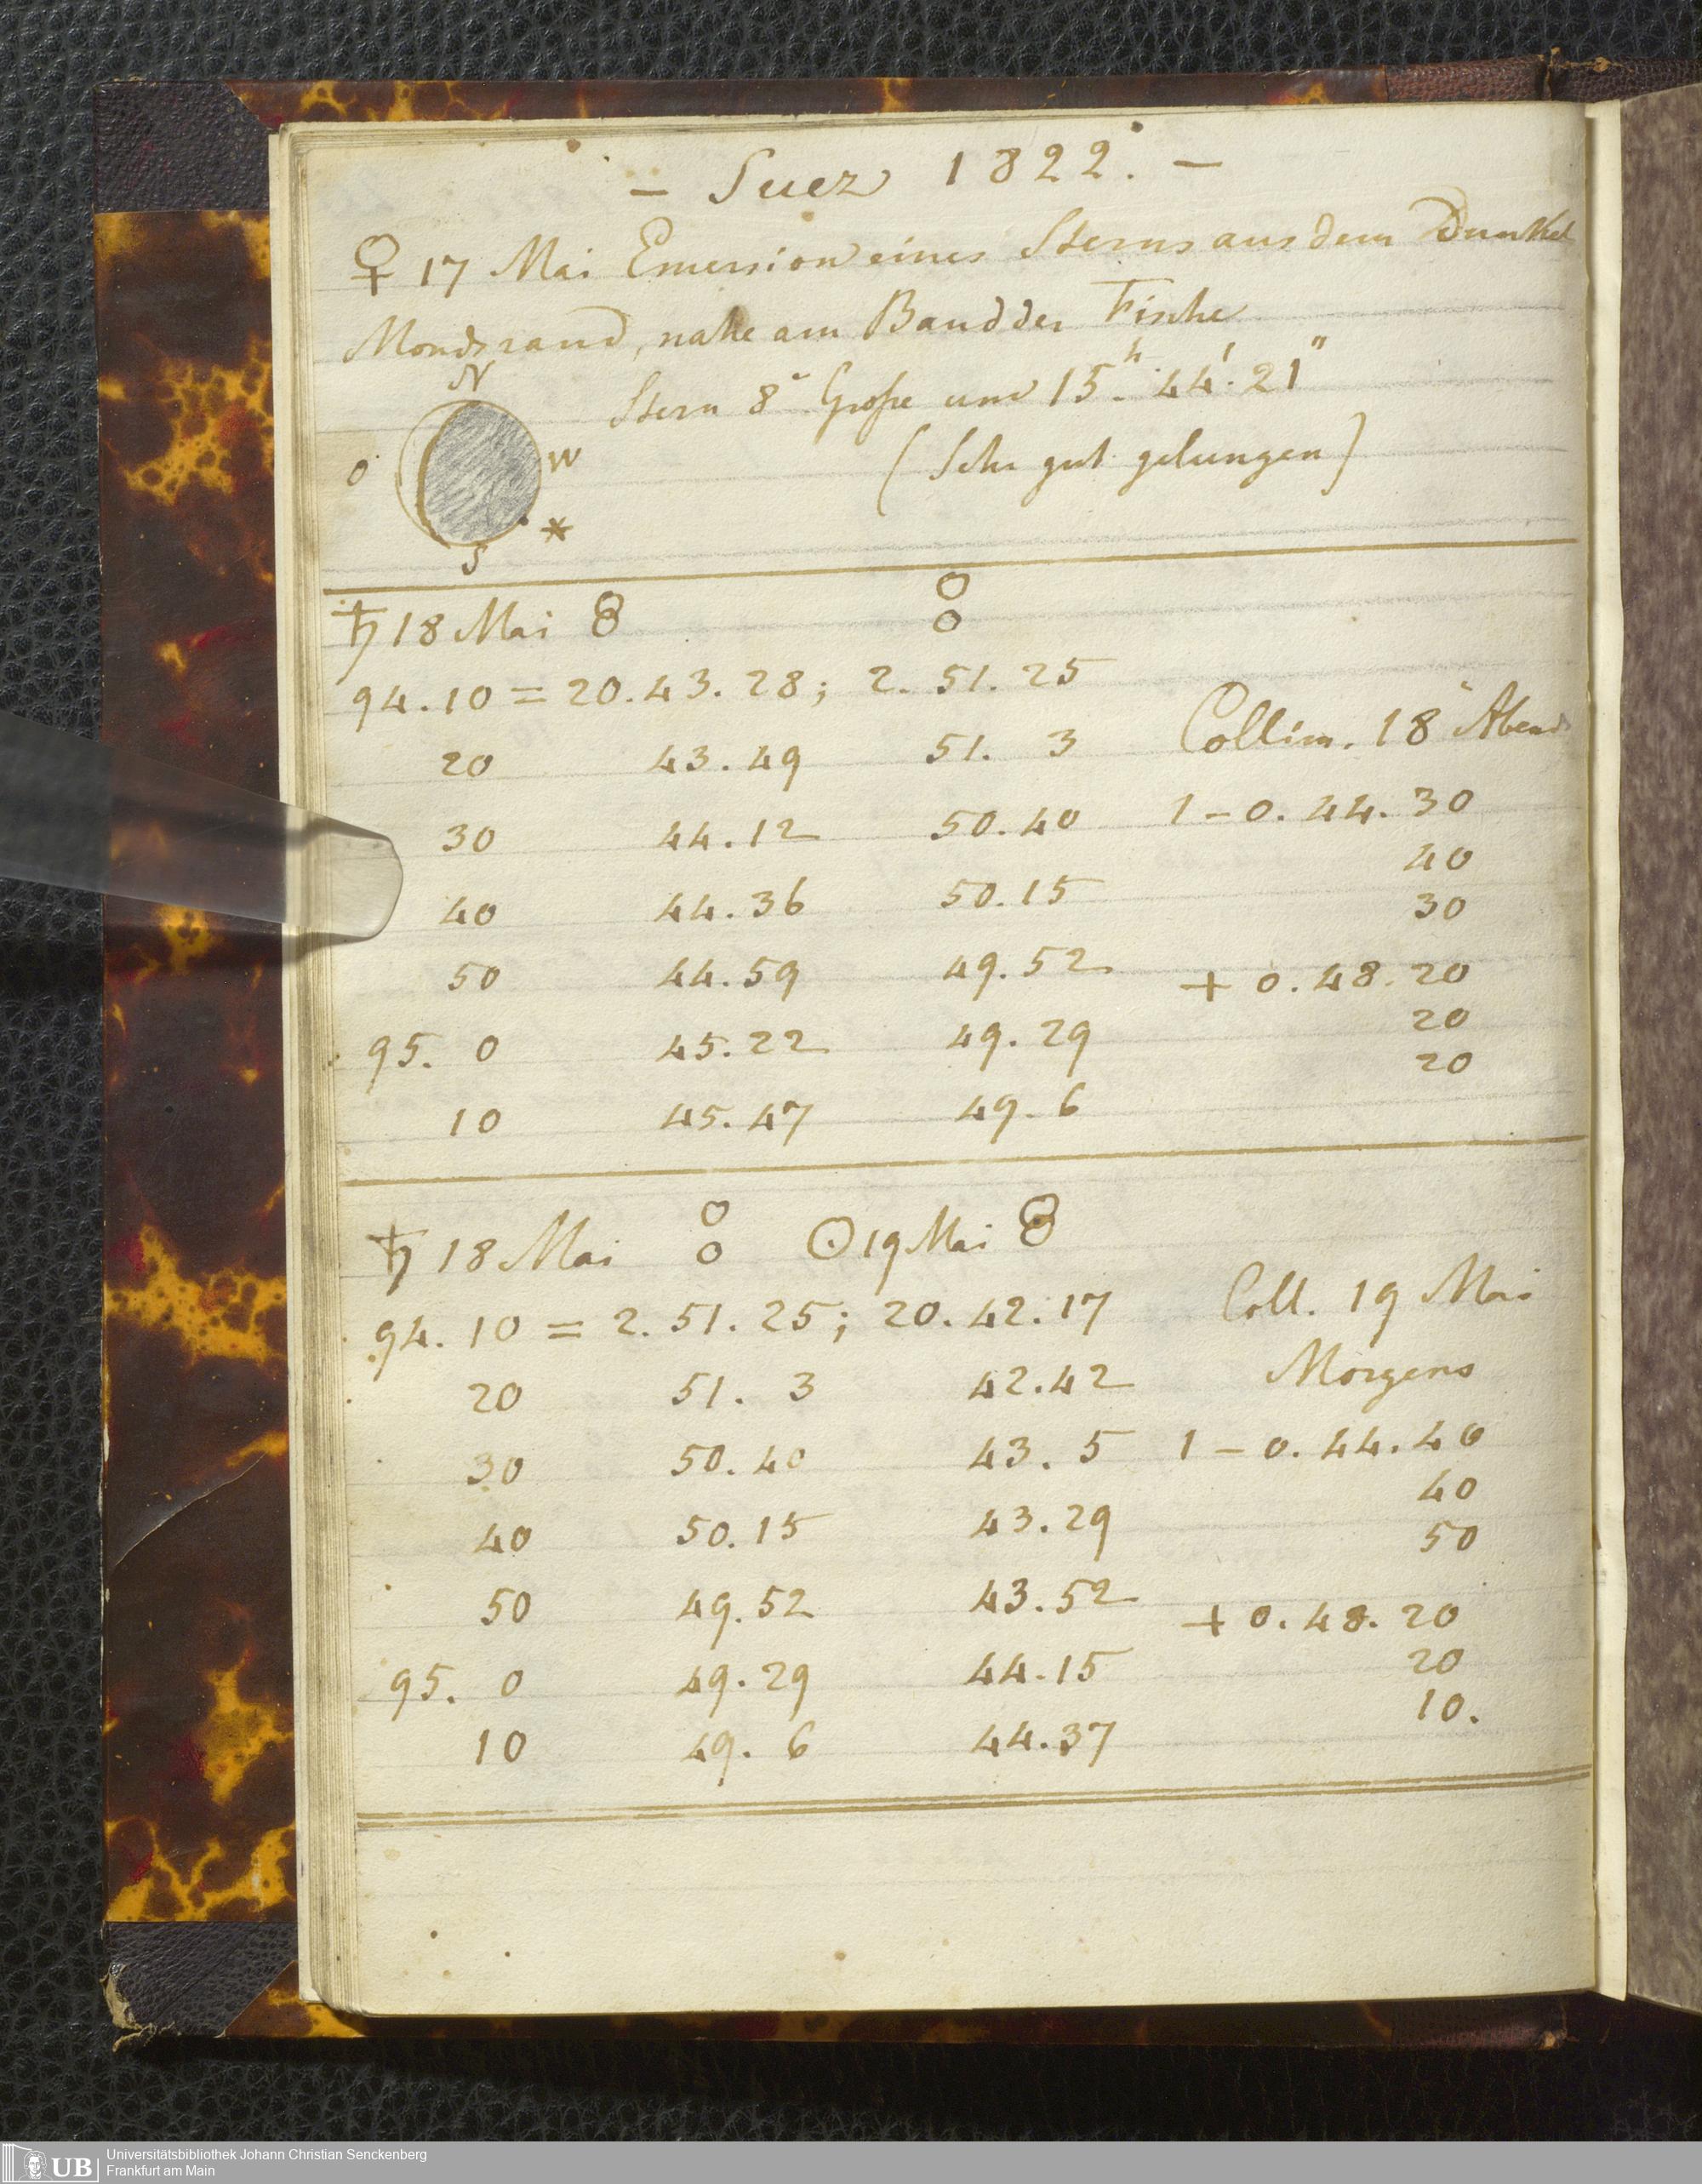 – Suez 1822. –
♀ 17 Mai Emersion eines Sterns aus dem Dunkel
Mondsrand, nahe am Band der Fische
N
Stern 8ͤ Große um 15.ʰ 44.' 21"
O
W
(Sehr gut gelungen)
*
S
♄ 18 Mai
94.10 = 20.43.28; 2.51.25
20 43.49 51. 3 Collim. 18ͤ Abend
30 44.12 50.40 1 – 0.44.30
40
40 44.36 50.15 30
50 44.59 49.52 + 0.48.20
95. 0 45.22 49.29 20
20
10 45.47 49. 6
♄ 18 Mai ☉ 19 Mai
94.10 = 2.51.25; 20.42.17 Coll. 19 Mai
20 51. 3 42.42 Morgens
30 50.40 43. 5 1 – 0.44.40
40
40 50.15 43.29 50
50 49.52 43.52 + 0.48.20
95. 0 49.29 44.15 20
10.
10 49. 6 44.37
UB Universitätsbibliothek Johann Christian Senckenberg
Frankfurt am Main